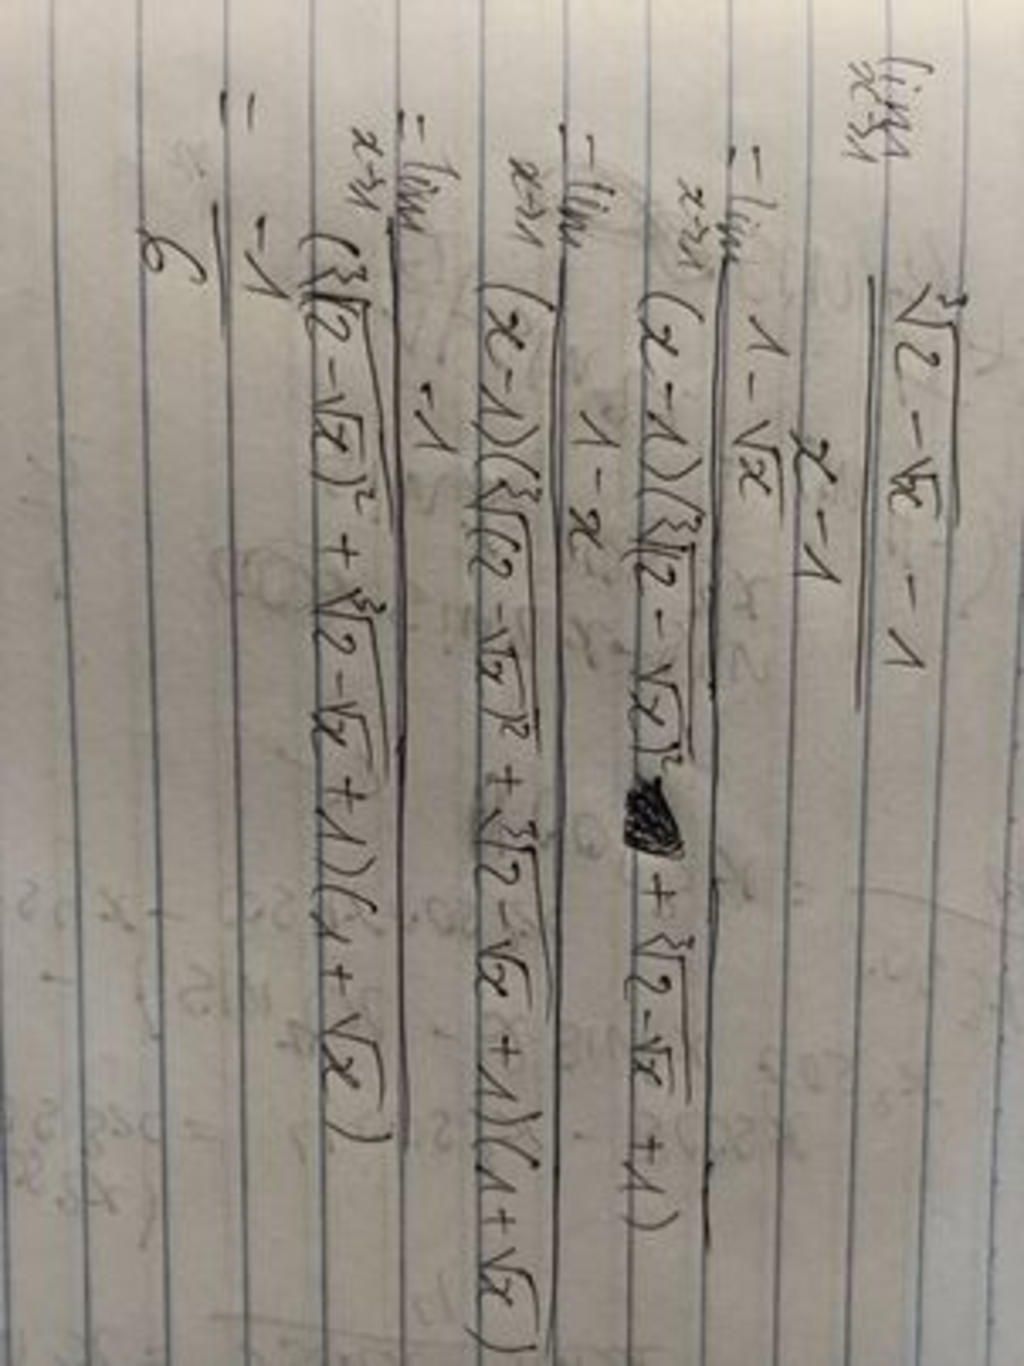 lim x→1 (∛(2 - √x) - 1) / (x - 1)
= lim x→1 (1 - √x) / ((x - 1)(∛(2 - √x)² + ∛(2 - √x) + 1))
= lim x→1 (1 - x) / ((x - 1)(∛(2 - √x)² + ∛(2 - √x) + 1)(1 + √x))
= lim x→1 -1 / ((∛(2 - √x)² + ∛(2 - √x) + 1)(1 + √x))
= -1 / 6